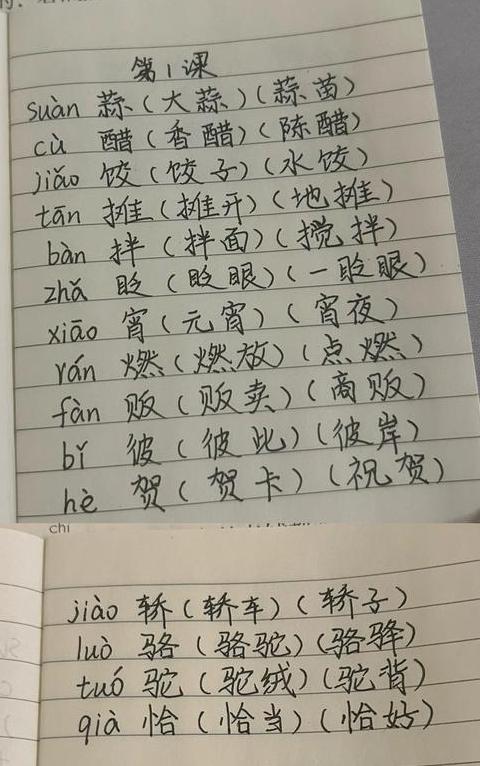 第1课
suàn 蒜(大蒜)(蒜苗)
cù 醋(香醋)(陈醋)
jiǎo 饺(饺子)(水饺)
tān 摊(摊开)(地摊)
bàn 拌(拌面)(搅拌)
zhǎ 眨(眨眼)(一眨眼)
xiāo 宵(元宵)(宵夜)
rán 燃(燃放)(点燃)
fàn 贩(贩卖)(商贩)
bǐ 彼(彼此)(彼岸)
hè 贺(贺卡)(祝贺)
chi
jiào 轿(轿车)(轿子)
luò 骆(骆驼)(骆驿)
tuó 驼(驼绒)(驼背)
qià 恰(恰当)(恰好)